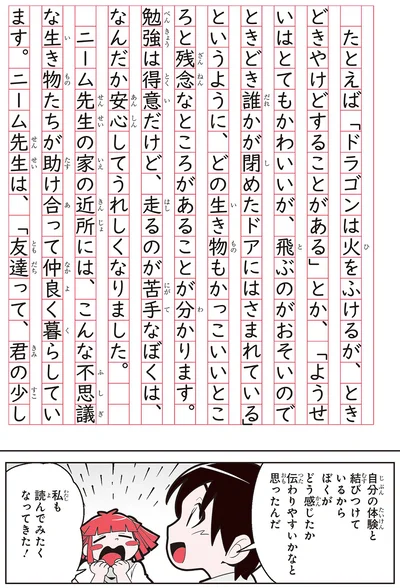 たとえば「ドラゴンは火をふけるが、とき
どきやけどすることがある」とか、「ようせ
いはとてもかわいいが、飛ぶのがおそいので
ときどき誰かが閉めたドアにはさまれている」
というように、どの生き物もかっこいいとこ
ろと残念なところがあることが分かります。
勉強は得意だけど、走るのが苦手なぼくは、
なんだか安心してうれしくなりました。
ニーム先生の家の近所には、こんな不思議
な生き物たちが助け合って仲良く暮らしてい
ます。ニーム先生は、「友達って、君の少し
自分の体験と
結びつけて
いるから
ぼくが
どう感じたか
伝わりやすいかなと
思ったんだ
私も
読んでみたく
なってきた!